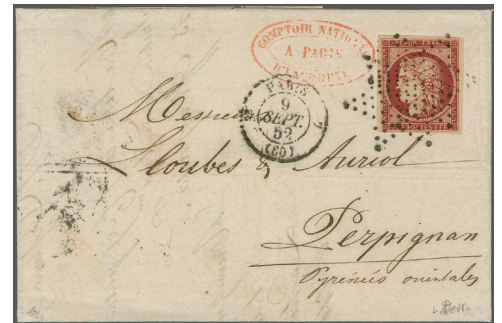 COMPTOIR NATIONAL
A PARIS
D'ESCOMPTE
PARIS
9
SEPT.
52
(60)
Messieurs
Sloubes & Auriol
Perpignan
Pyrénées orientales